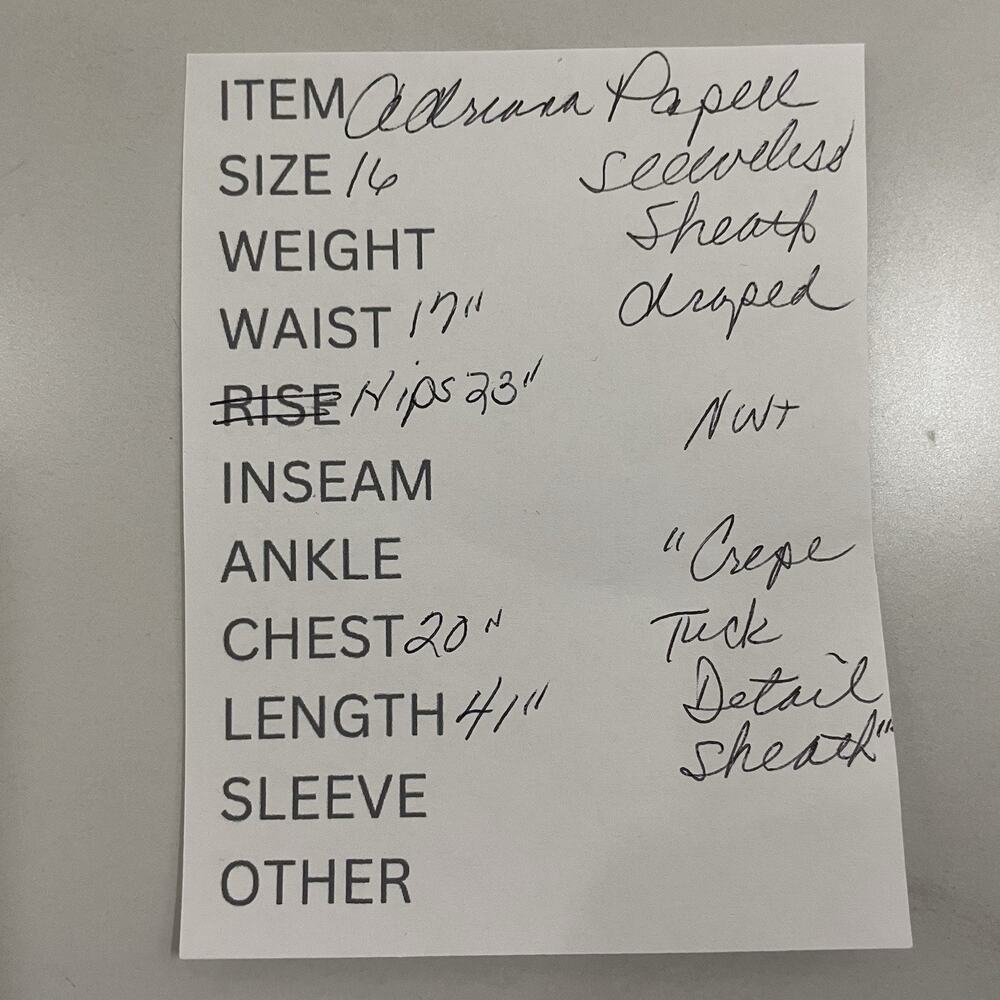 ITEM Adriana Papell
SIZE 16
Sleeveless
WEIGHT
Sheath
WAIST 17"
draped
RISE Hips 23"
NWT
INSEAM
ANKLE
"Crepe
CHEST 20"
Tuck
LENGTH 41"
Detail
Sheath"
SLEEVE
OTHER